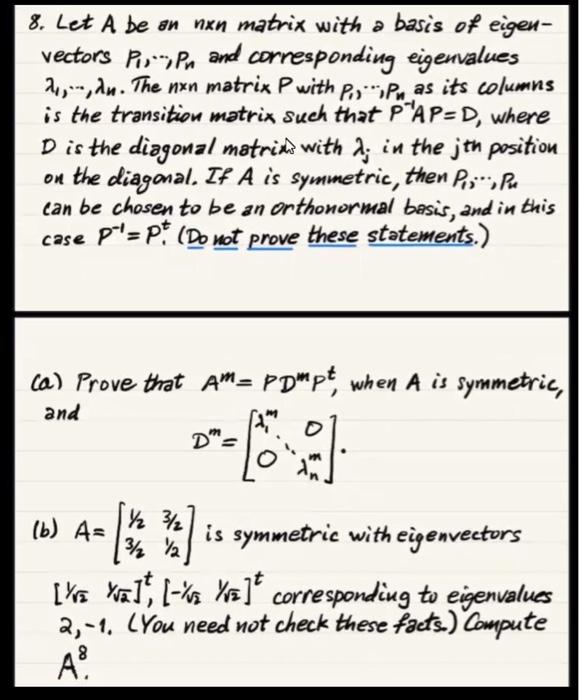 8. Let A be an nxn matrix with a basis of eigen-
vectors P₁,⋯,Pₙ and corresponding eigenvalues
λ₁,⋯,λₙ. The nxn matrix P with P₁,⋯,Pₙ as its columns
is the transition matrix such that P⁻¹AP=D, where
D is the diagonal matrix with λⱼ in the jth position
on the diagonal. If A is symmetric, then P₁,⋯,Pₙ
can be chosen to be an orthonormal basis, and in this
case P⁻¹=Pᵗ. (Do not prove these statements.)
(a) Prove that Aᵐ= PDᵐPᵗ, when A is symmetric,
and
Dᵐ= [λ₁ᵐ 0
⋱
0 λₙᵐ].
(b) A= [½ 3/2
3/2 ½] is symmetric with eigenvectors
[1/√2 1/√2]ᵗ, [-1/√2 1/√2]ᵗ corresponding to eigenvalues
2,-1. (You need not check these facts.) Compute
A⁸.